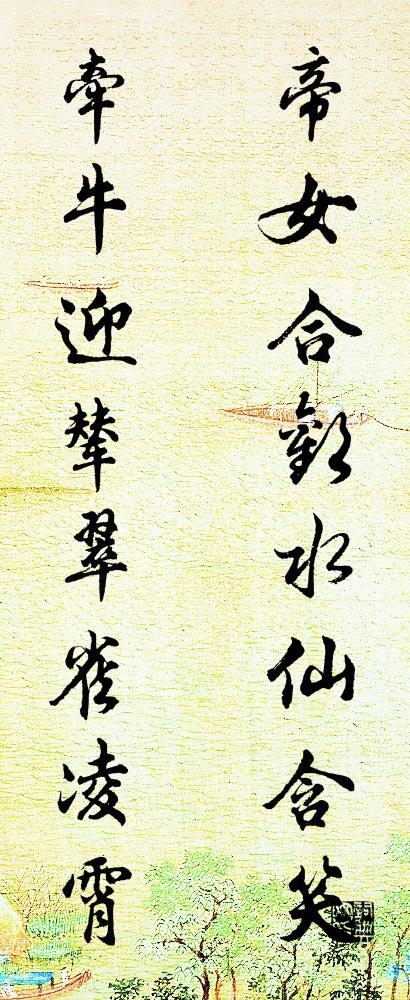 帝女合歡水仙含笑
牽牛迎輦翠雀凌霄